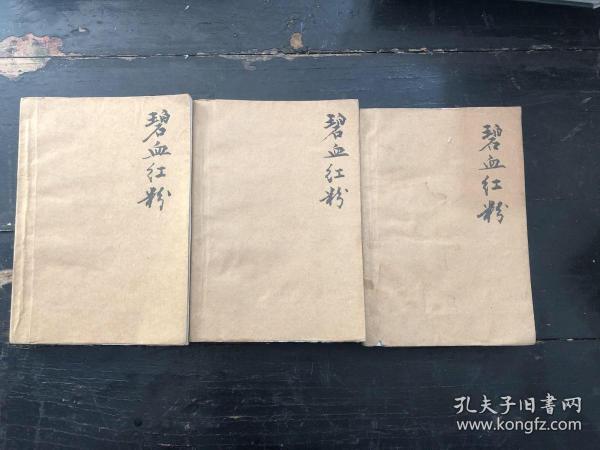 碧血红粉
碧血红粉
碧血红粉
孔夫子旧书网
www.kongfz.com